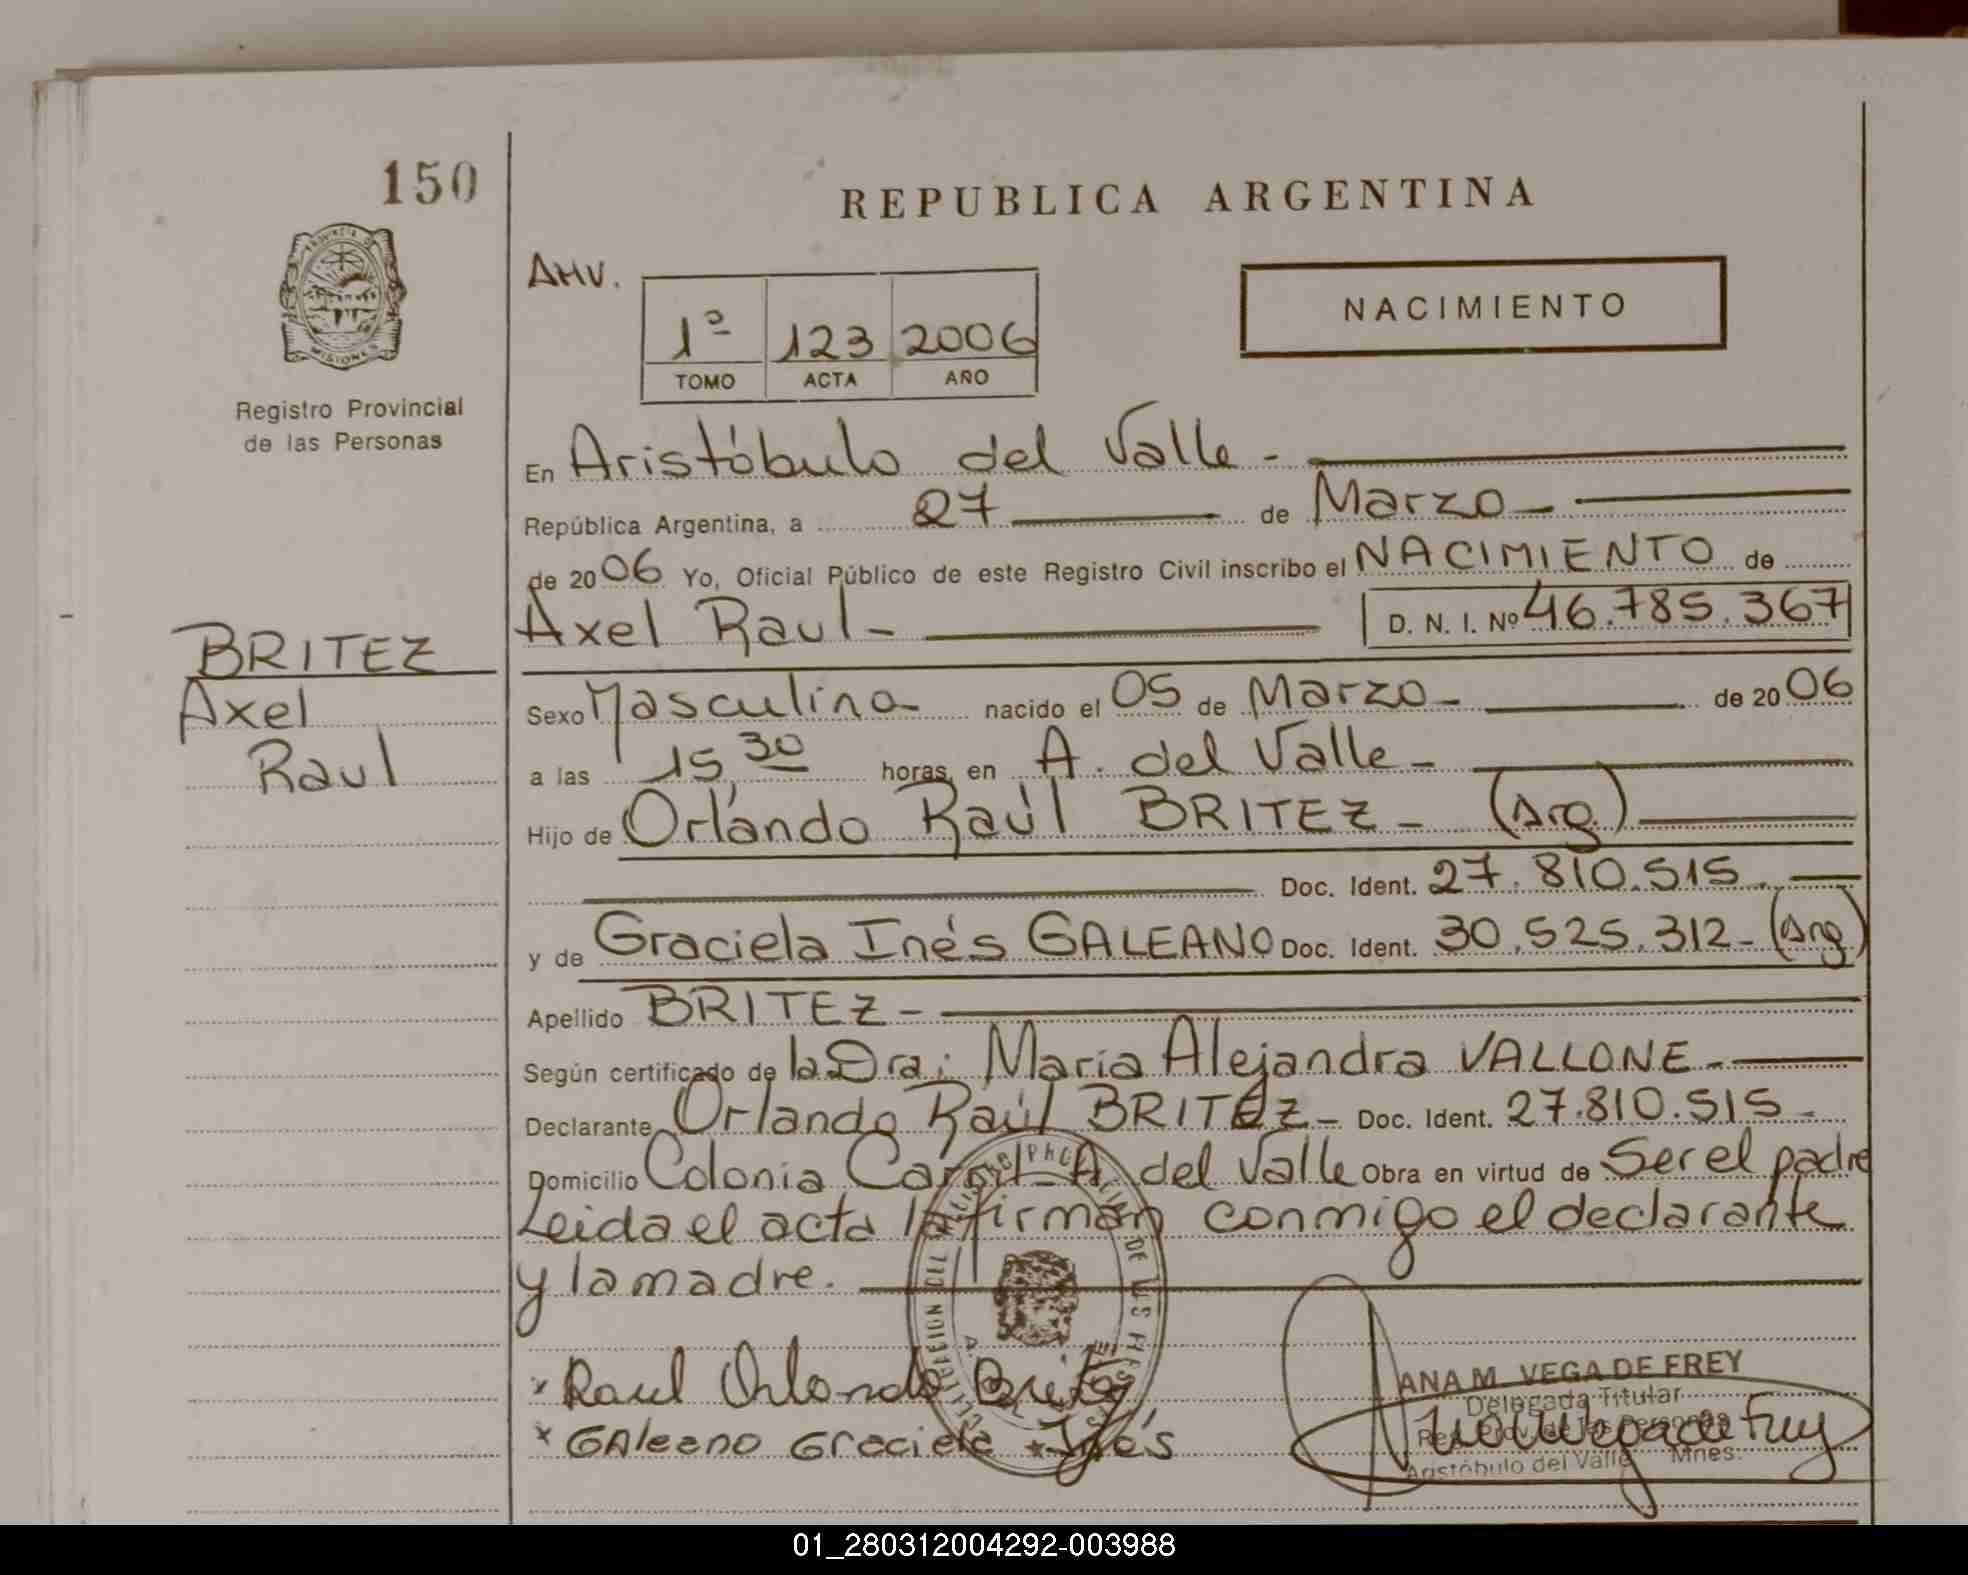 150
REPUBLICA ARGENTINA
PROVINCIA DE
MISIONES
Registro Provincial
de las Personas
AMV.
1º 123 2006
TOMO ACTA AÑO
NACIMIENTO
En Aristóbulo del Valle -
República Argentina, a 27 de Marzo -
de 2006 Yo, Oficial Público de este Registro Civil inscribo el NACIMIENTO de
Axel Raul - D. N. I. Nº 46.785.367
BRITEZ
Axel
Raul
Sexo Masculino nacido el 05 de Marzo - de 2006
a las 15,30 horas, en A. del Valle -
Hijo de Orlando Raúl BRITEZ - (Arg.)
Doc. Ident. 27.810.515
y de Graciela Inés GALEANO Doc. Ident. 30.525.312 - (Arg)
Apellido BRITEZ -
Según certificado de la Dra: María Alejandra VALLONE -
Declarante Orlando Raúl BRITEZ - Doc. Ident. 27.810.515 -
Domicilio Colonia - A. del Valle Obra en virtud de Ser el padre
Leida el acta la firman conmigo el declarante
y la madre.
x Raul Orlando Britez
x GAleano Graciela Inés
ANA M. VEGA DE FREY
Delegada Titular
Reg. Prov. de las Personas
Aristóbulo del Valle Mnes.
01_280312004292-003988